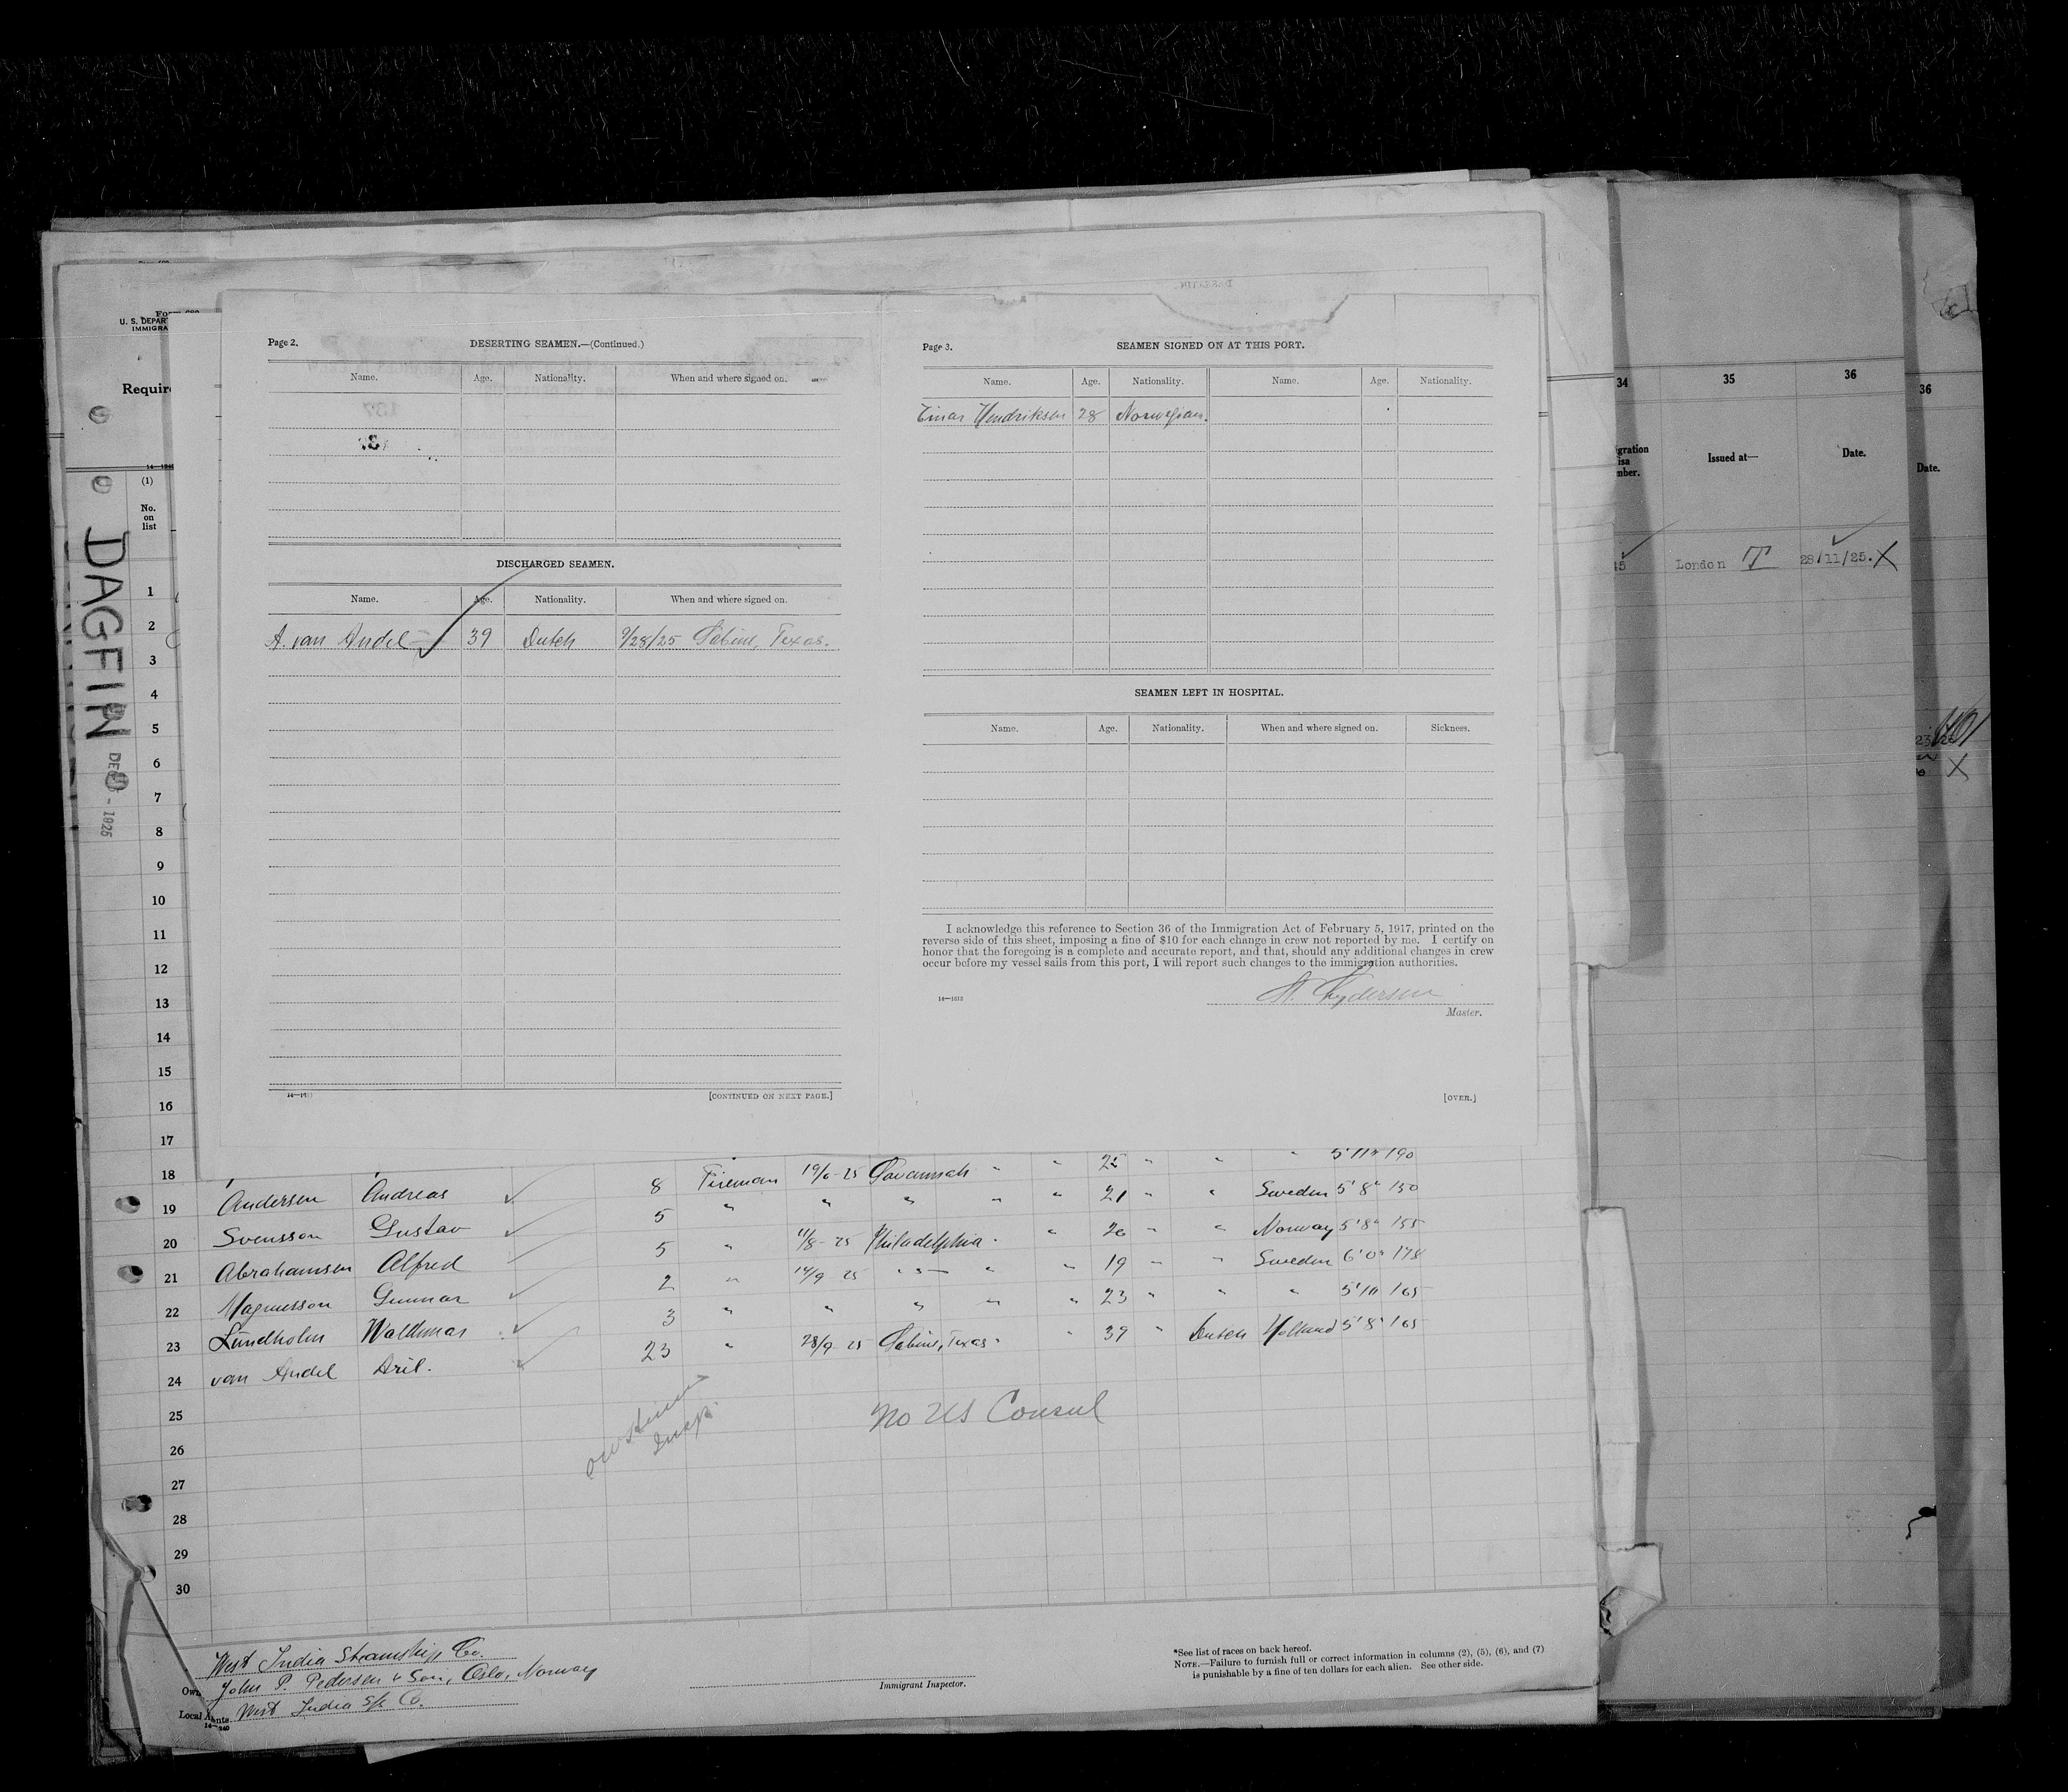 Page 2.
DESERTING SEAMEN.—(Continued.)
Name. Age. Nationality. When and where signed on.
DISCHARGED SEAMEN.
Name. Age. Nationality. When and where signed on.
A. van Andel 39 Dutch 9/28/25 Sabine, Texas.
14—1613
[CONTINUED ON NEXT PAGE.]
Page 3.
SEAMEN SIGNED ON AT THIS PORT.
Name. Age. Nationality. Name. Age. Nationality.
Einar Hendriksen 28 Norwegian.
SEAMEN LEFT IN HOSPITAL.
Name. Age. Nationality. When and where signed on. Sickness.
I acknowledge this reference to Section 36 of the Immigration Act of February 5, 1917, printed on the
reverse side of this sheet, imposing a fine of $10 for each change in crew not reported by me. I certify on
honor that the foregoing is a complete and accurate report, and that, should any additional changes in crew
occur before my vessel sails from this port, I will report such changes to the immigration authorities.
14—1613
Master.
[OVER.]
U. S. DEPAR
IMMIGRA
Require
(1)
No.
on
list
DAGFIN
DEC - 1925
1
2
3
4
5
6
7
8
9
10
11
12
13
14
15
16
17
18 5' 11" 190
19 Andersen Andreas 8 Fireman 19/6-25 Savannah " " 25 " " "
20 Svensson Gustav 5 " " " " " 21 " " Sweden 5' 8" 150
21 Abrahamsen Alfred 5 " 11/8-25 Philadelphia " 26 " " Norway 5' 8" 155
22 Magnusson Gunnar 2 " 14/9 25 " " " 19 " " Sweden 6' 0" 178
23 Lundholm Waldemar 3 " " " " " 23 " " " 5' 11 165
24 van Andel Aril. 23 " 28/9 25 Sabine, Texas " 39 " Dutch Holland 5' 8" 165
25
No US Consul
26
27
28
29
30
West India Steamship Co.
Own John P. Pedersen & Son, Oslo, Norway
Local Agents West India S/S Co.
14—240
Immigrant Inspector.
*See list of races on back hereof.
NOTE.—Failure to furnish full or correct information in columns (2), (5), (6), and (7)
is punishable by a fine of ten dollars for each alien. See other side.
34 35 36
gration
isa
mber. Issued at— Date.
London 28/11/25. X
36
Date.
X